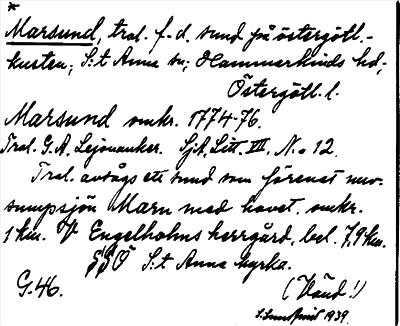 *
Marsund, trol. f.d. sund på östergötl.-
kusten; S:t Anna sn; Hammarkinds hd,
Östergötl. l.
Marsund omkr. 1774-76.
Trol. G.A. Lejonanker. Sjk. Litt. VII. N.o 12.
Trol. avsågs ett sund som förenat nuv.
sumpsjön Marn med havet, omkr.
1 km. V Engelholms herrgård, bel. 7,9 km.
SSÖ S:t Anna kyrka.
G.46.
(Vänd!)
1939.